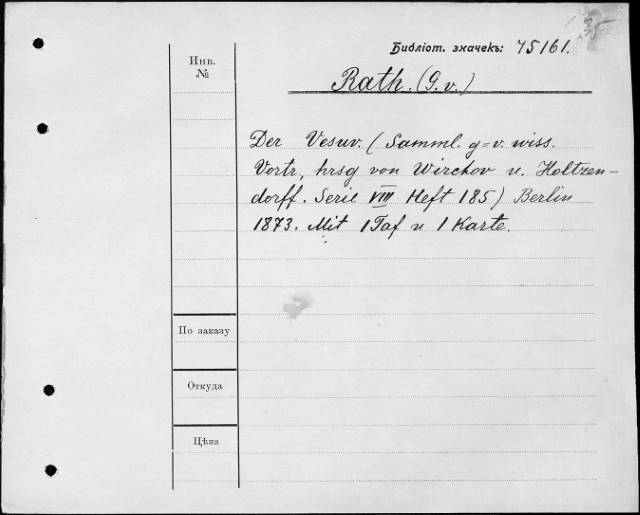 Библіот. значекъ: 75161.
Инв.
№
Rath. (G. v.)
Der Vesuv. (Samml. g=v. wiss.
Vortr, hrsg von Wirchov u. Holtzen-
dorff. Serie VIII Heft 185) Berlin
1873. Mit 1 Taf u 1 Karte.
По заказу
Откуда
Цѣна